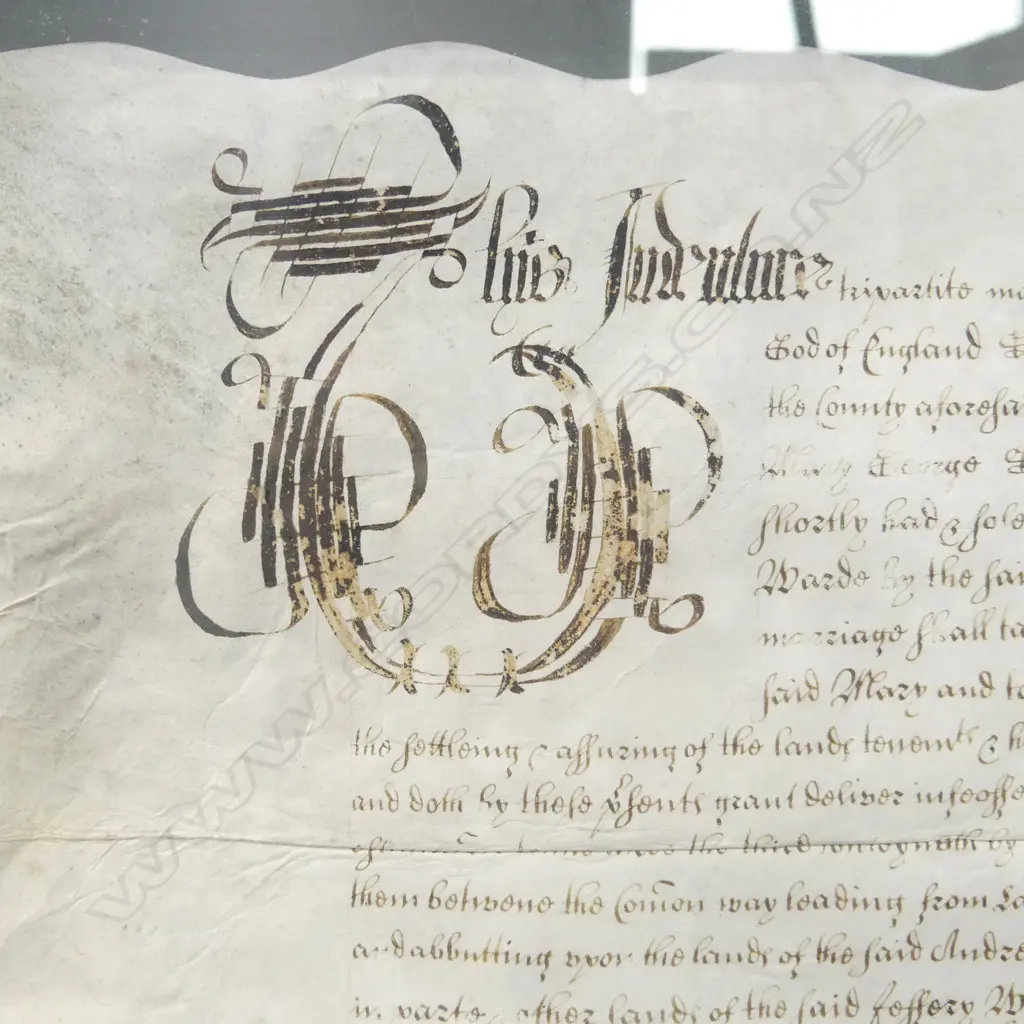 This Indenture tripartite
God of England
the County aforesa
Mary George
shortly had & sole
Warde by the sai
marriage shall ta
said Mary and to
the settleing & assuring of the lands tenemts & h
and doth by these psents grant deliver infeoffe
the third
them betweene the Comon way leading from
and abbutting upon the lands of the said Andre
in parte other lands of the said Jeffery W
www.cordys.co.nz